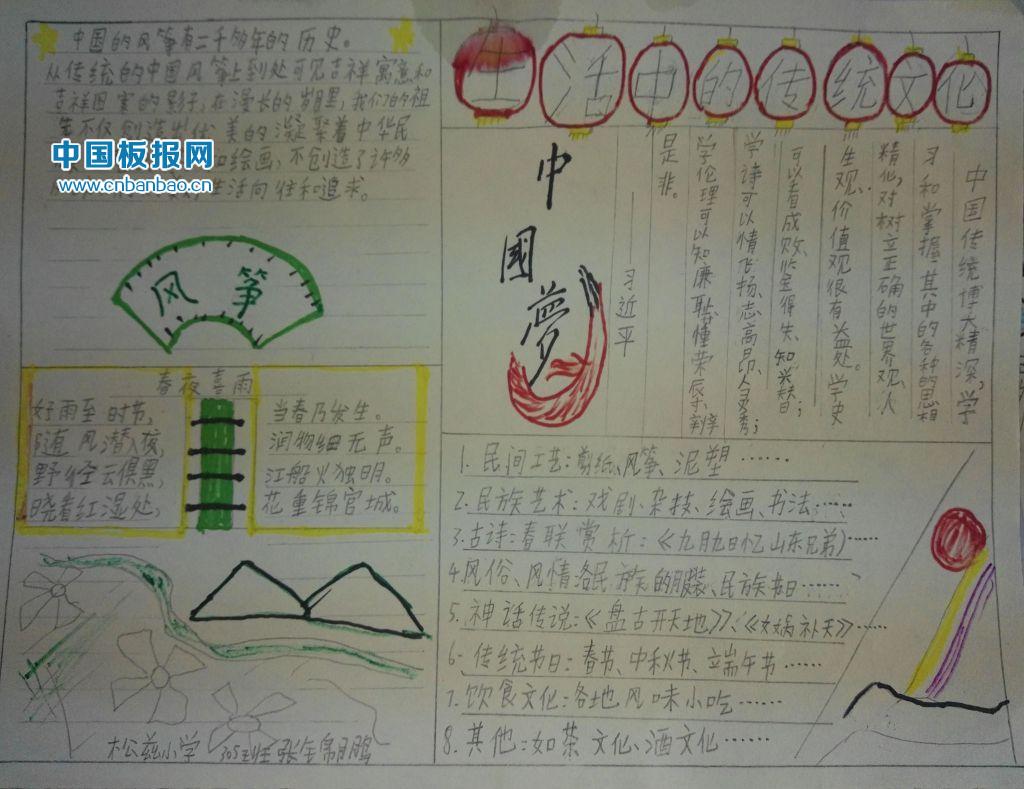 中国的风筝有二千多年的历史。
从传统的中国风筝上到处可见吉祥寓意和
吉祥图案的影子,在漫长的岁月里,我们的祖
美的凝聚着中华民
和绘画,不创造了许多
生活向往和追求。
中国板报网
www.cnbanbao.cn
风筝
春夜喜雨
好雨至时节,当春乃发生。
随风潜入夜,润物细无声。
野径云俱黑,江船火独明。
晓看红湿处,花重锦官城。
松兹小学
生活中的传统文化
中国传统博大精深,学
习和掌握其中的各种的思想
精化,对树立正确的世界观、人
生观、价值观很有益处。学史
可以看成败、鉴得失、知兴替;
学诗可以情飞扬、志高昂、人灵秀;
学伦理可以知廉耻、懂荣辱、辨
是非。
——习近平
中國夢
1. 民间工艺:剪纸、风筝、泥塑……
2. 民族艺术:戏剧、杂技、绘画、书法……
3. 古诗:春联赏析:《九月九日忆山东兄弟》……
4. 风俗、风情:各民族的服装、民族节日……
5. 神话传说:《盘古开天地》、《女娲补天》……
6. 传统节日:春节、中秋节、端午节……
7. 饮食文化:各地风味小吃……
8. 其他:如茶文化、酒文化……